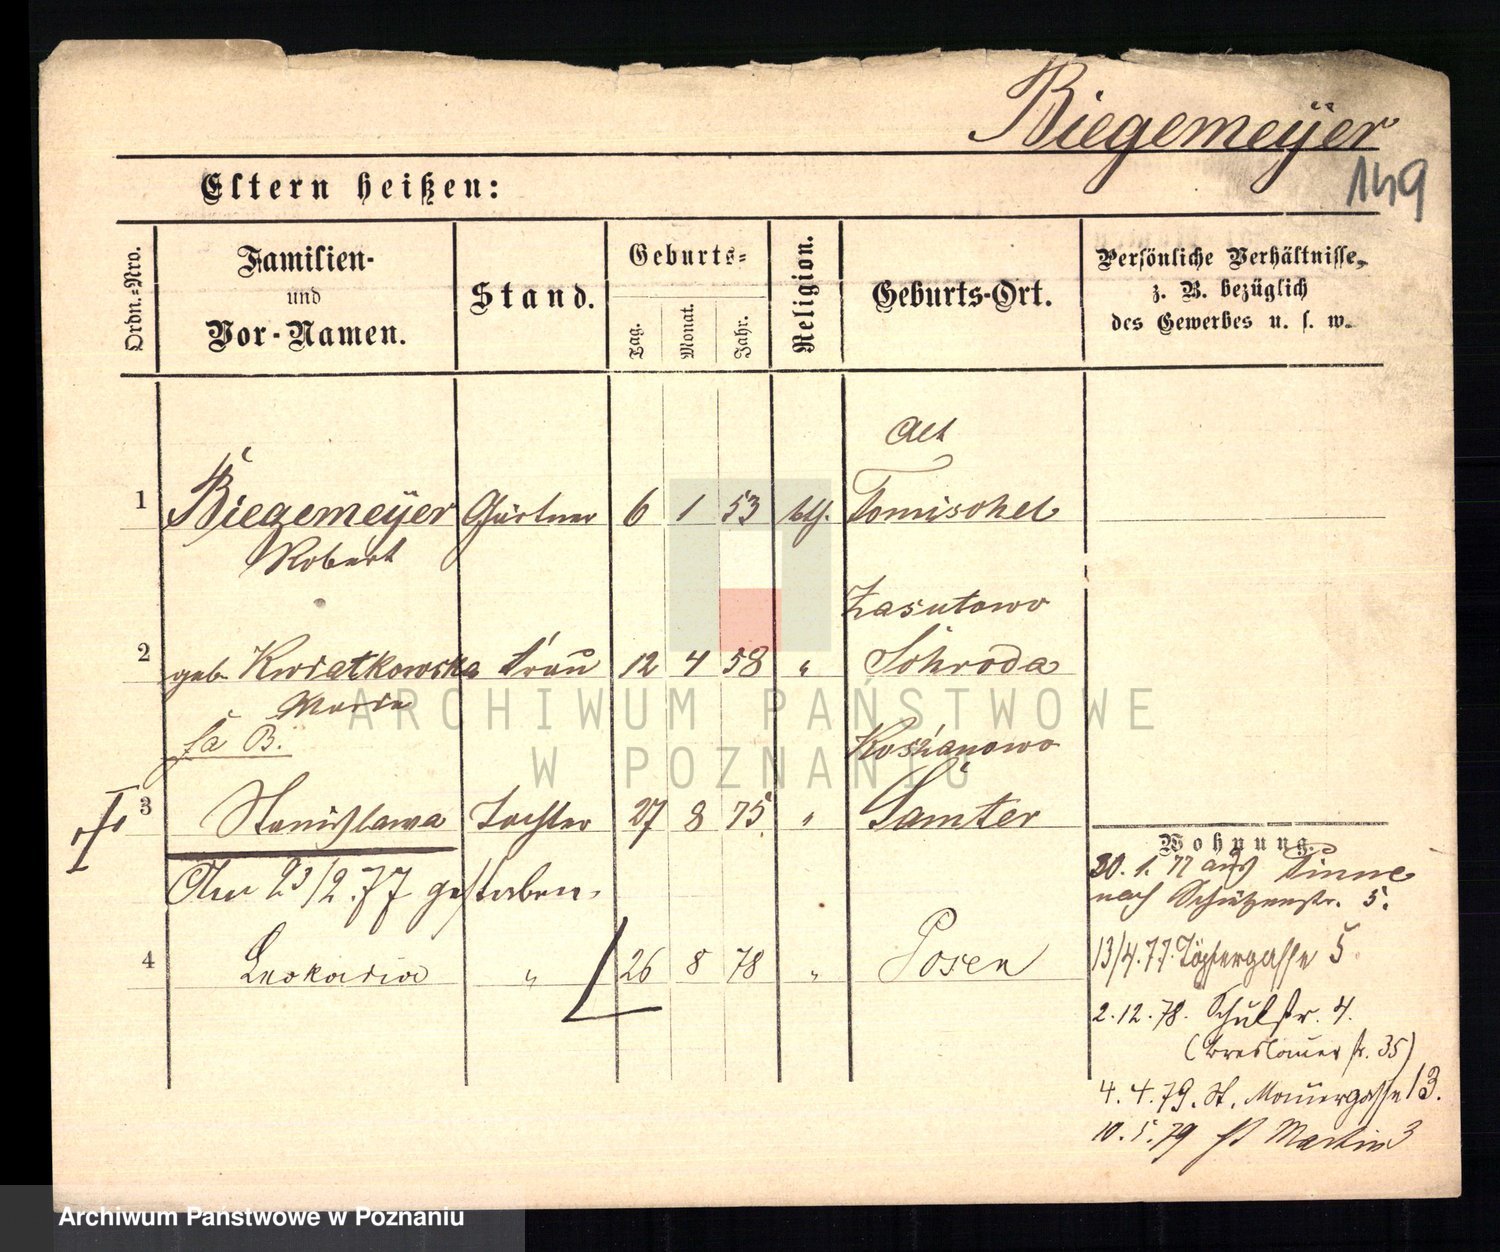 Biegemeÿer
149
Eltern heißen:
Ordn.-Nro.
Familien-
und
Vor-Namen.
Stand.
Geburts-
Tag.
Monat.
Jahr.
Religion.
Geburts-Ort.
Persönliche Verhältnisse,
z. B. bezüglich
des Gewerbes u. s. w.
Alt
1 Biegemeÿer Gärtner 6 1 53 kth. Tomischel
Robert
Zasutowo
2 geb Kwiatkowska Frau 12 4 58 " Schroda
Maria
B.
Kozianowo
3 Stanislawa Tochter 27 8 75 " Samter
Am 23/2.77 gestorben.
4 Leokadia " 26 8 78 " Posen
Wohnung.
30. 1. 77 aus Pinne
nach Schützenstr. 5.
13/4.77. Töpfergasse 5
2.12.78. Schulstr. 4.
(Breslauer str. 35)
4. 4. 79. St. Mauergasse 13.
10. 5. 79 St Martin 3
ARCHIWUM PAŃSTWOWE
W POZNANIU
Archiwum Państwowe w Poznaniu